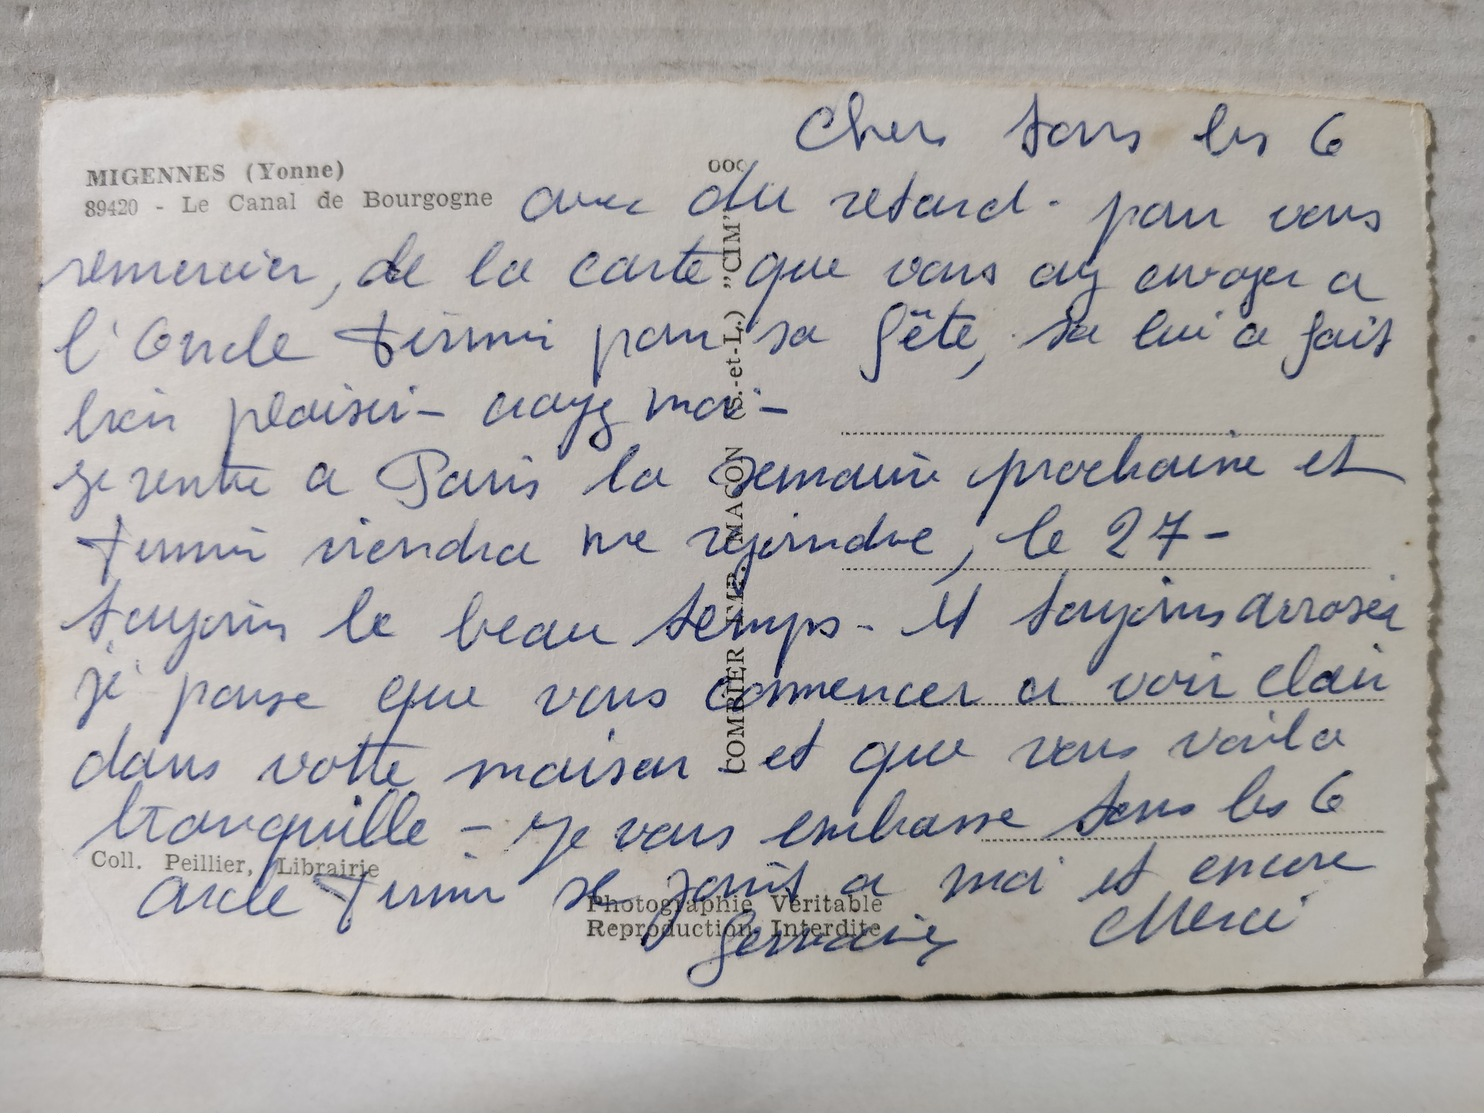 MIGENNES (Yonne)
89420 - Le Canal de Bourgogne
COMBIER IMP. MACON (S.-et-L.) "CIM"
Chers tous les 6
avec du retard. pour vous
remercier, de la carte que vous ay envoyer a
l'Oncle Firmin pour sa fête, sa lui a fait
bien plaisir - croyez moi -
je rentre a Paris la semaine prochaine et
Firmin viendra me rejoindre, le 27 -
toujours le beau temps - et toujours arroser
je pense que vous commencer a voir clair
dans votre maison et que vous voila
tranquille - Je vous embrasse tous les 6
Coll. Peillier, Librairie
oncle Firmin se joint a moi et encore
Merci
Germaine
Photographie Véritable
Reproduction Interdite